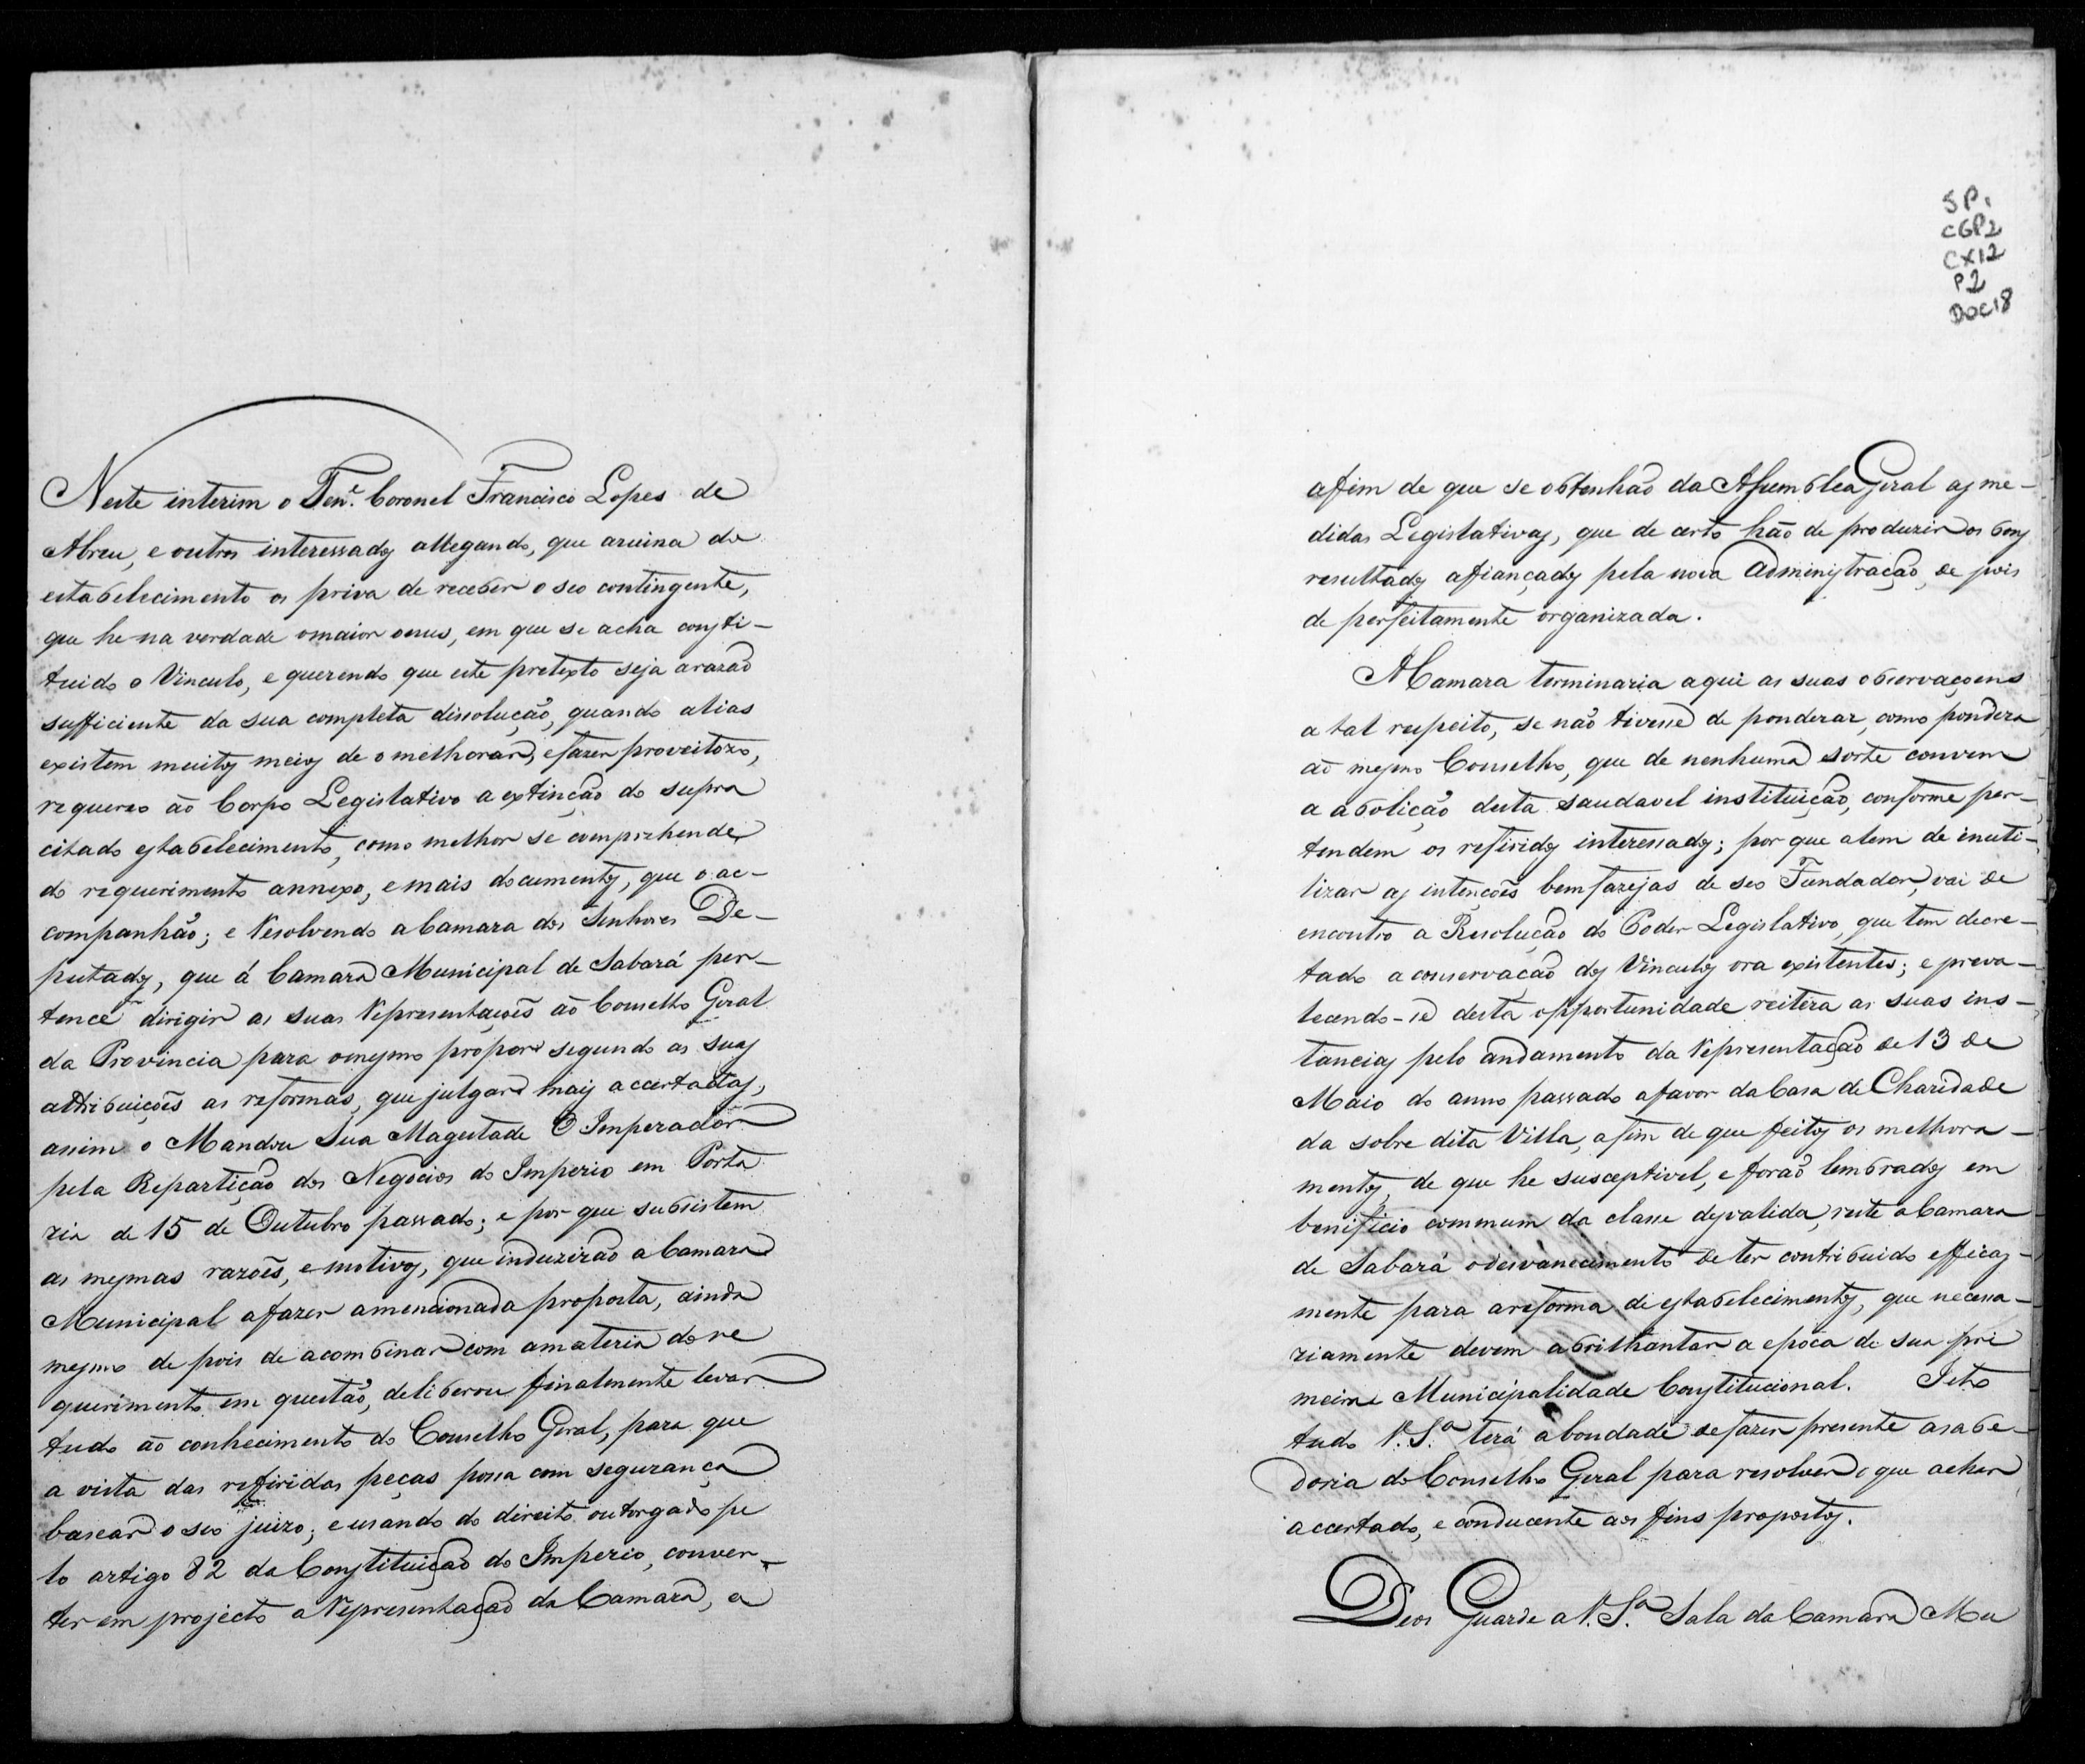 Neste interim o Ten.e Coronel Francisco Lopes de
Abreu, e outros interessados allegando, que aruina do
estabelecimento os priva de receber o seo contingente,
que he na verdade omaior onus, em que se acha consti-
tuido o Vinculo, e querendo que este pretexto seja arazaõ
sufficiente da sua completa dissoluçaõ, quando alias
existem muitos meios de o melhorar, efazer proveitozo,
requereo ao Corpo Legislativo a extinçaõ do supra
citado estabelecimento, como melhor se comprehende
do requerimento annexo, emais documentos, que o ac-
companhaõ; e Resolvendo aCamara dos Senhores De-
putados, que á Camara Municipal de Sabará per-
tence dirigir as suas Representaçoẽs aõ Conselho Geral
da Provincia para omesmo propor segundo as suas
attribuiçoẽs as reformas, que julgar mais accertadas,
assim o Mandou Sua Magestade O Imperador
pela Repartiçaõ dos Negocios do Imperio em Porta
ria de 15 de Outubro passado; e por que subsistem
as mesmas razoẽs, emotivos, que induziraõ aCamara
Municipal afazer amencionada proposta, ainda
mesmo de pois de acombinar com amateria do re
querimento em questaõ, deliberou finalmente levar
tudo aõ conhecimento do Conselho Geral, para que
a vista das referidas peças possa com segurança
basear o seo juizo; eusando do direito outorgado pe
lo artigo 82 da Constituiçaõ do Imperio, conver-
ter em projecto aRepresentaçaõ da Camara, a
SP.
CGP2
CX12
P2
DOC18
affim de que se obtenhaõ da Assemblea Geral as me-
didas Legislativas, que de certo haõ de produzir os bons
resultados afiançados pela nova administraçaõ, de pois
de perfeitamente organizada.
ACamara terminaria aqui as suas observaçoens
a tal respeito, se naõ tivesse de ponderar, como pondera
aõ mesmo Conselho, que de nenhuma sorte convem
a aboliçaõ desta saudavel instituiçaõ, conforme per-
tendem os referidos interessados; por que alem de inuti-
lizar as intençoẽs bemfazejas de seo Fundador, vai de
encontro a Resoluçaõ do Poder Legislativo, que tem decre-
tado aconservaçaõ dos Vinculos ora existentes; e preva-
lecendo-se desta opportunidade reitera as suas ins-
tancias pelo andamento da Representaçaõ de 13 de
Maio do anno passado afavor daCasa de Charidade
da sobre dita Villa, afim de que feitos os melhora-
mentos, de que he susceptivel, e foraõ lembrados em
beneficio commum da classe desvalida, reste aCamara
de Sabará odesvanecimento de ter contribuido efficaz-
mente para areforma de estabelecimentos, que necessa-
riamente devem abrilhantar a epoca de sua pri
meira Municipalidade Constitucional. Isto
tudo V.S.a terá abondade defazer presente asabe-
doria do Conselho Geral para resolver o que achar
accertado, e conducente aos fins propostos.
Deos Guarde a V.S.a Sala da Camara Mu